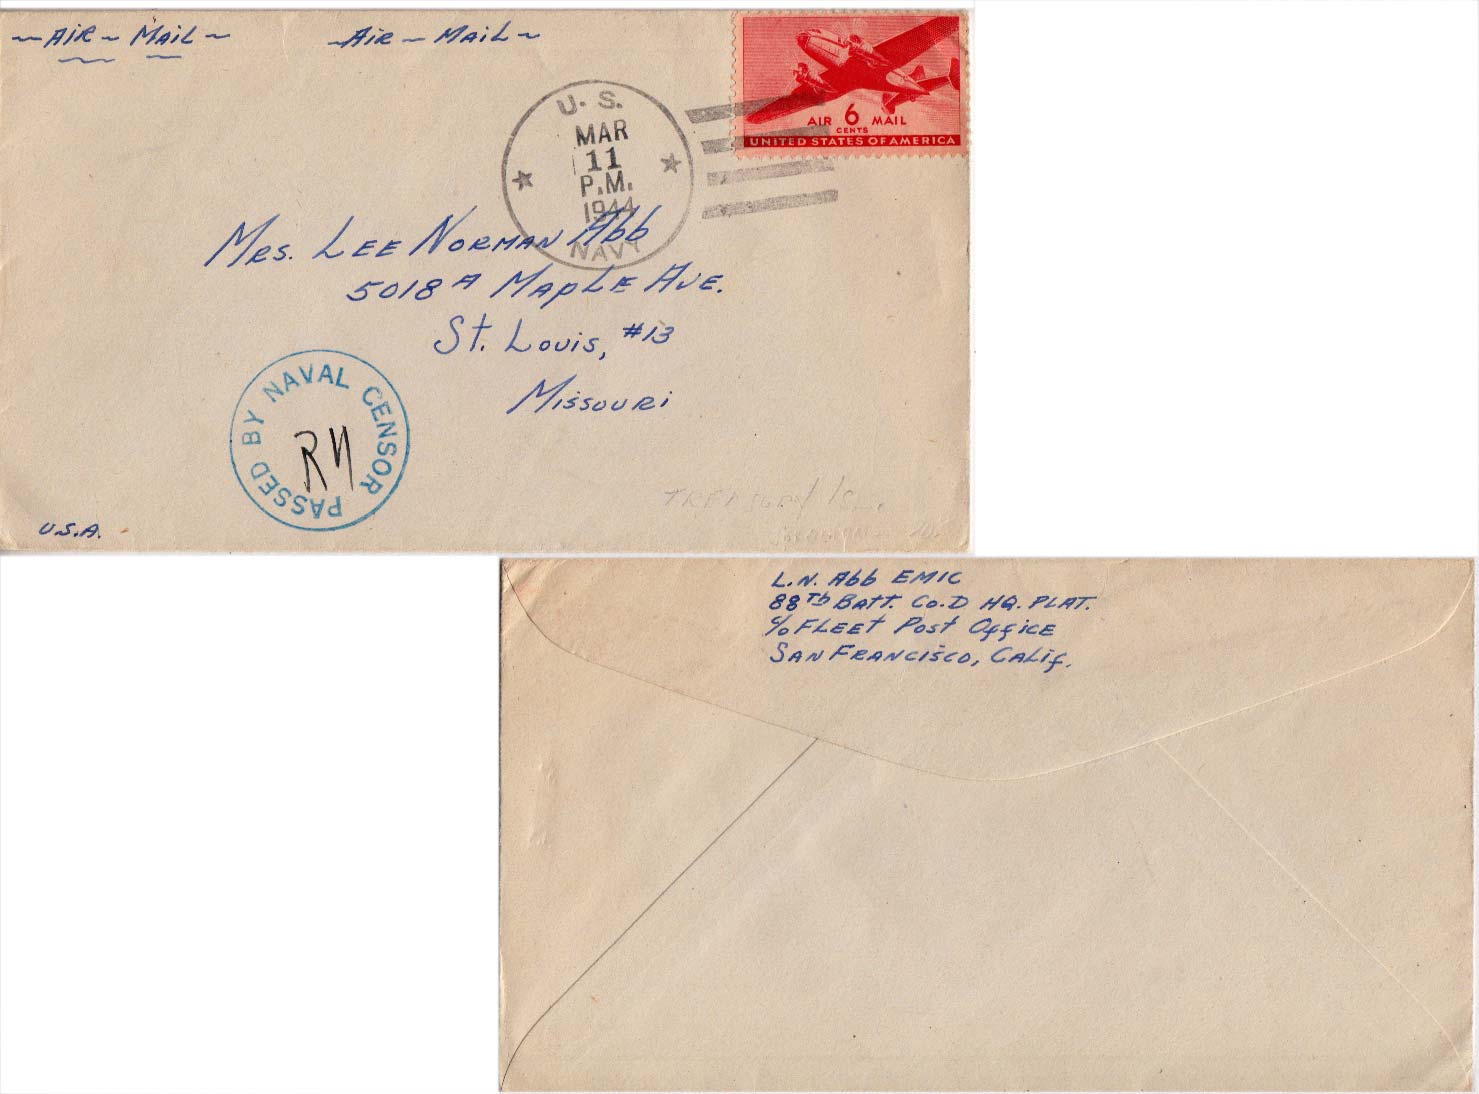 ~AIR~ MAIL~ ~AIR~MAIL~
AIR 6 MAIL
CENTS
UNITED STATES OF AMERICA
U.S.
MAR
11
P.M.
1944
NAVY
MRS. LEE NORMAN Abb
5018 A MAPLE AVE.
St. Louis, #13
Missouri
PASSED BY NAVAL CENSOR
TREASURY IS.
U.S.A.
L.N. Abb EMIC
88Th BATT. Co.D HQ. PLAT.
c/o FLEEt Post OfficE
SAN FRANCISCO, CALif.